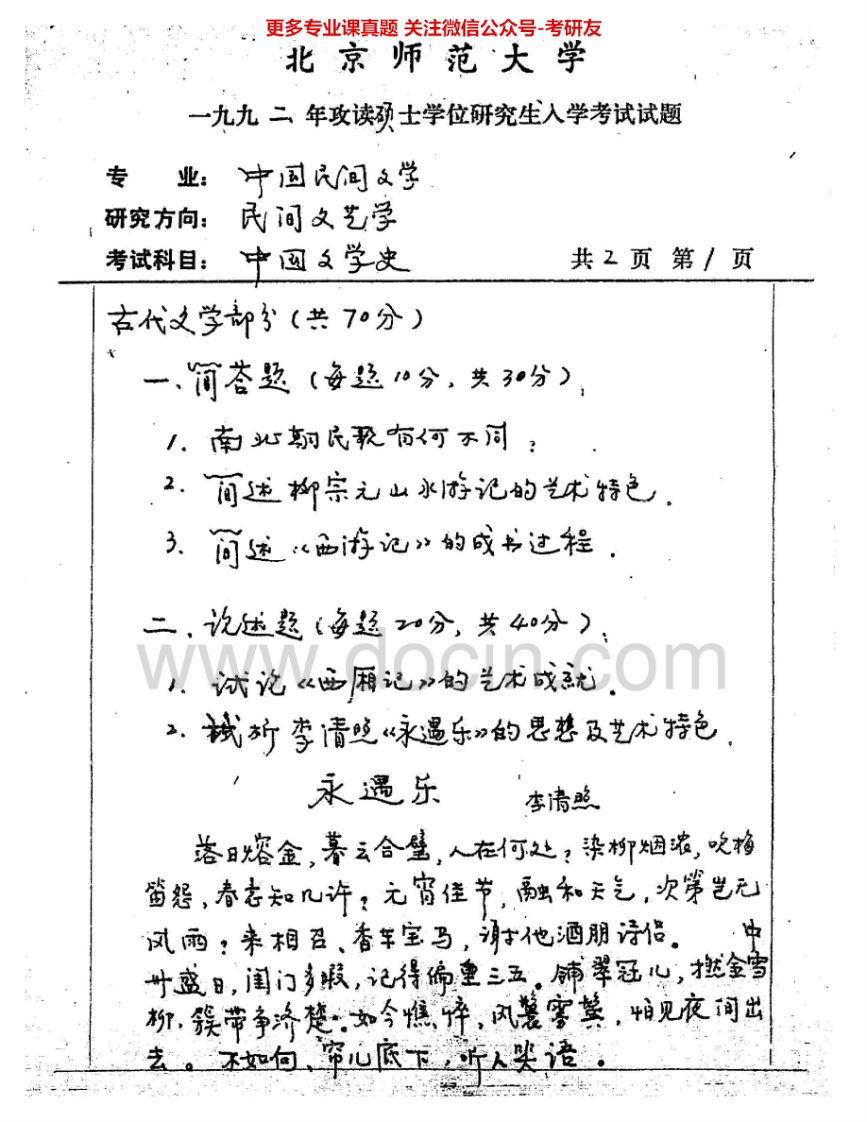 更多专业课真题 关注微信公众号-考研友
北京师范大学
一九九二年攻读硕士学位研究生入学考试试题
专 业：中国民间文学
研究方向：民间文艺学
考试科目：中国文学史 共2页 第1页
古代文学部分（共70分）
一、简答题（每题10分，共30分）
1. 南北朝民歌有何不同？
2. 简述柳宗元山水游记的艺术特色．
3. 简述《西游记》的成书过程．
二、论述题（每题20分，共40分）
www.docin.com
1. 试论《西厢记》的艺术成就．
2. 试析李清照《永遇乐》的思想及艺术特色．
永遇乐 李清照
落日熔金，暮云合璧，人在何处？染柳烟浓，吹梅
笛怨，春意知几许？元宵佳节，融和天气，次第岂无
风雨？来相召、香车宝马，谢他酒朋诗侣。 中
州盛日，闺门多暇，记得偏重三五。铺翠冠儿，撚金雪
柳，簇带争济楚。如今憔悴，风鬟雾鬓，怕见夜间出
去。不如向、帘儿底下，听人笑语。